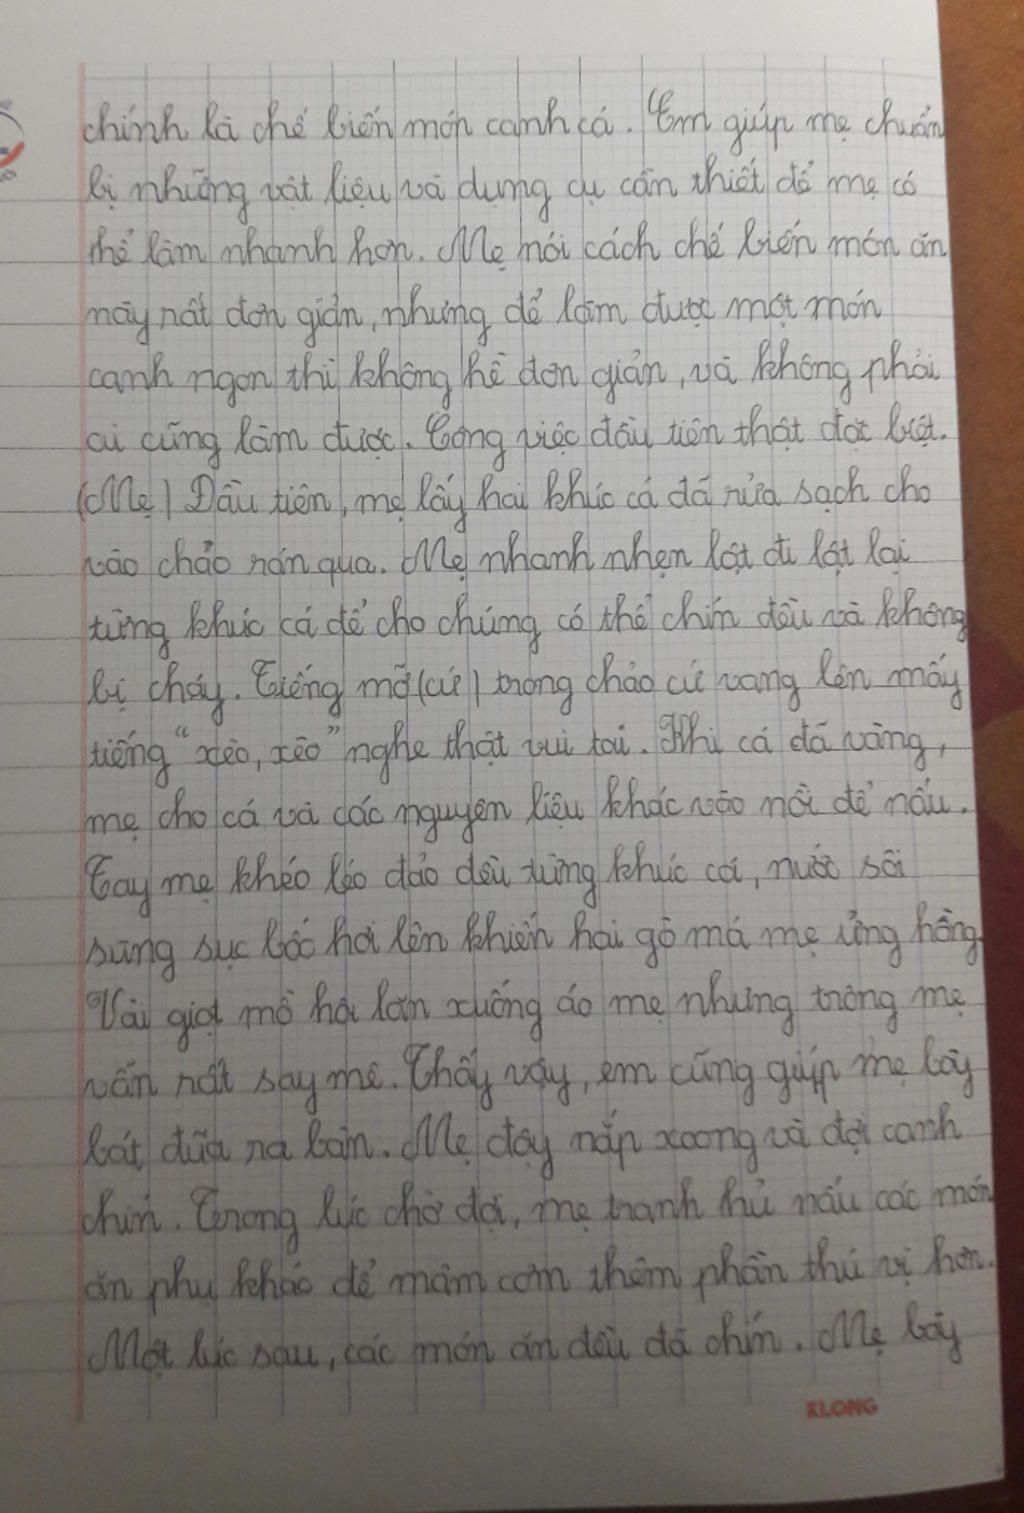 chính là chế biến món canh cá. Em giúp mẹ chuẩn
bị những vật liệu và dụng cụ cần thiết để mẹ có
thể làm nhanh hơn. Mẹ nói cách chế biến món ăn
này rất đơn giản, nhưng để làm được một món
canh ngon thì không hề đơn giản, và không phải
ai cũng làm được. Công việc đầu tiên thật đặc biệt.
(Mẹ) Đầu tiên, mẹ lấy hai khúc cá đã rửa sạch cho
vào chảo rán qua. Mẹ nhanh nhẹn lật đi lật lại
từng khúc cá để cho chúng có thể chín đều và không
bị cháy. Tiếng mỡ (cứ) trong chảo cứ vang lên mấy
tiếng "xèo, xèo" nghe thật vui tai. Khi cá đã vàng,
mẹ cho cá và các nguyên liệu khác vào nồi để nấu.
Tay mẹ khéo léo đảo đều từng khúc cá, nước sôi
sùng sục bốc hơi lên khiến hai gò má mẹ ửng hồng.
Vài giọt mồ hôi lăn xuống áo mẹ nhưng trông mẹ
vẫn rất say mê. Thấy vậy, em cũng giúp mẹ bày
bát đũa ra bàn. Mẹ đậy nắp xoong và đợi canh
chín. Trong lúc chờ đợi, mẹ tranh thủ nấu các món
ăn phụ khác để mâm cơm thêm phần thú vị hơn.
Một lúc sau, các món ăn đều đã chín. Mẹ bày
KLONG